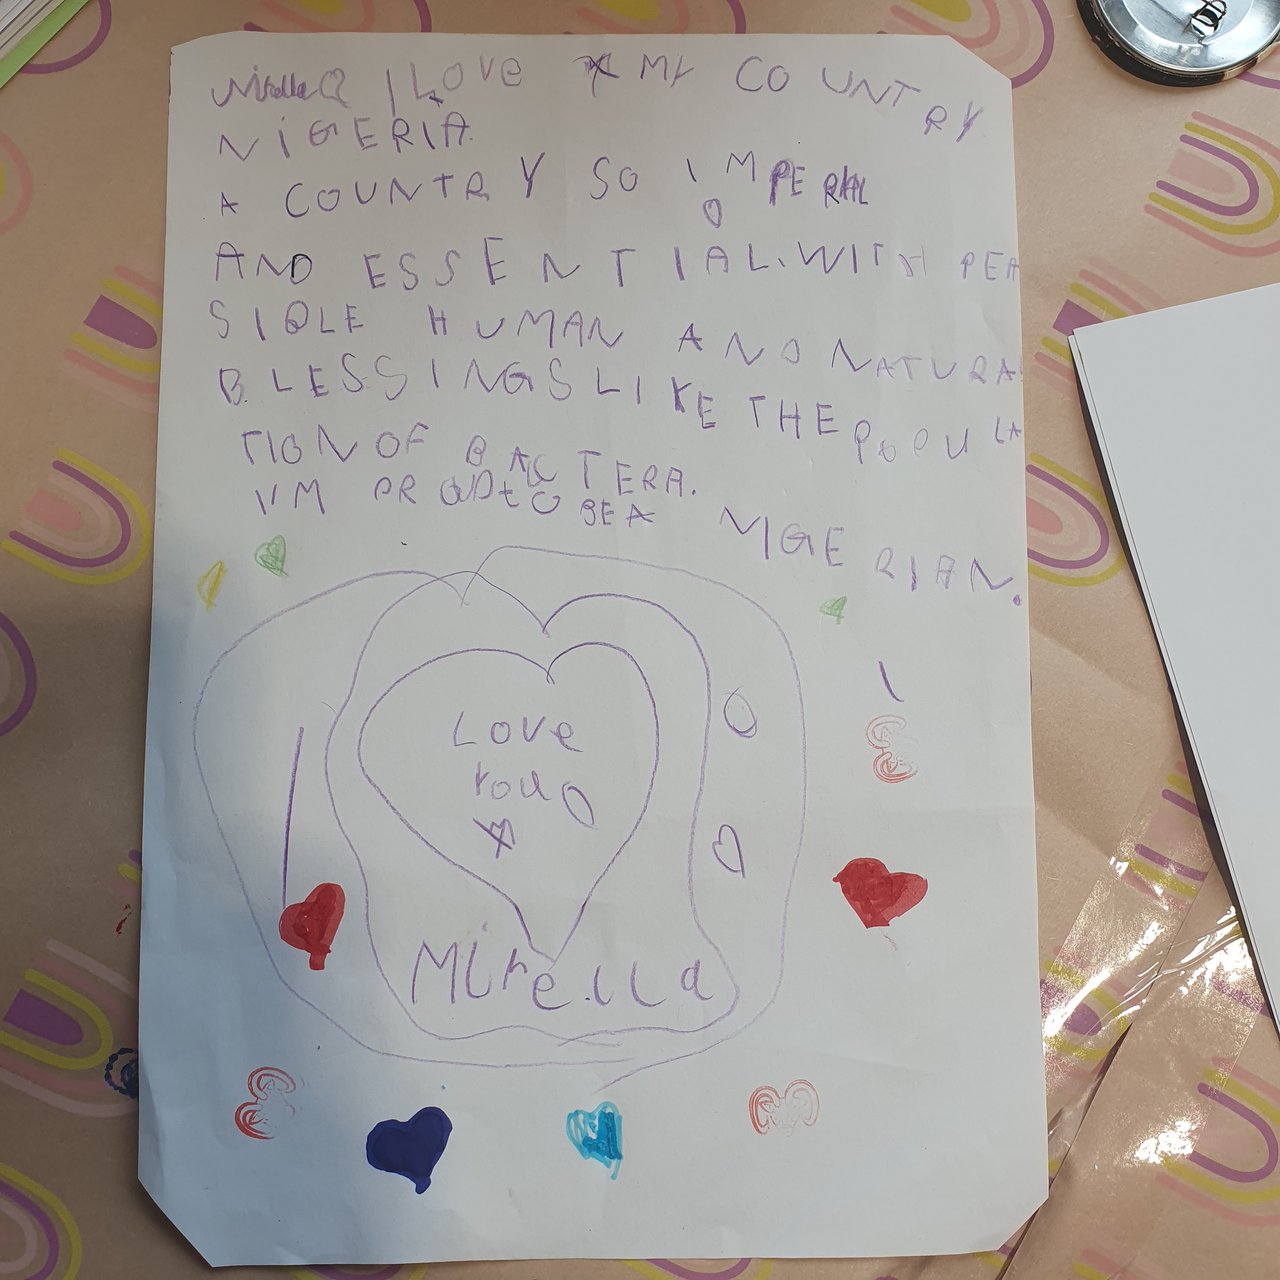 Mirella I LOVe MY COUNTRY
NiGERIA
A COUNTRY SO IMPERIAL
AND ESSENTIAL. WITH PEA
SIBLE HUMAN AND NATURA
BLESSINGS LIKE THE POPULA
TION OF BACTERA.
I'M PROUD tO BE A NIGERIAN.
Love
You
Mirella